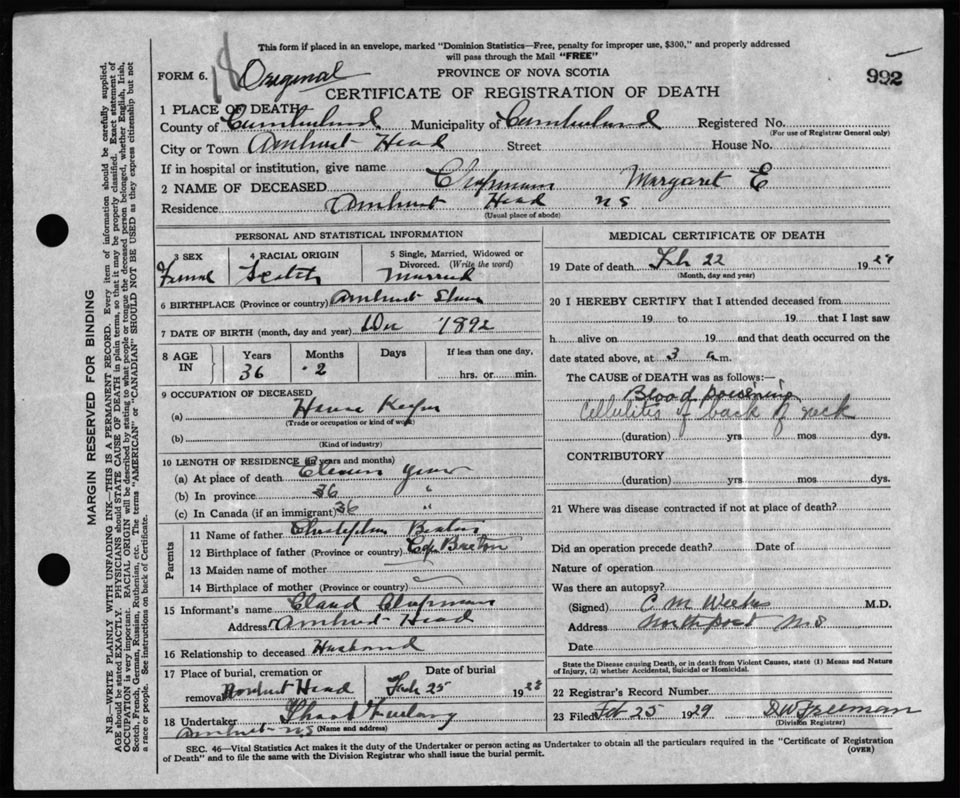 This form if placed in an envelope, marked "Dominion Statistics—Free, penalty for improper use, $300," and properly addressed
will pass through the Mail "FREE"
FORM 6. 18 Original
PROVINCE OF NOVA SCOTIA
992
CERTIFICATE OF REGISTRATION OF DEATH
1 PLACE OF DEATH
County of Cumberland Municipality of Cumberland Registered No.
(For use of Registrar General only)
City or Town Amherst Head Street House No.
If in hospital or institution, give name
2 NAME OF DECEASED Chapman Margaret E
Residence Amherst Head NS
(Usual place of abode)
PERSONAL AND STATISTICAL INFORMATION
3 SEX 4 RACIAL ORIGIN 5 Single, Married, Widowed or Divorced. (Write the word)
Female Scotch Married
6 BIRTHPLACE (Province or country) Amherst Shore
7 DATE OF BIRTH (month, day and year) Dec 1892
8 AGE IN Years Months Days If less than one day,
36 2 hrs. or min.
9 OCCUPATION OF DECEASED
(a) House Keeper
(Trade or occupation or kind of work)
(b)
(Kind of industry)
10 LENGTH OF RESIDENCE (in years and months)
(a) At place of death Eleven years
(b) In province 36 "
(c) In Canada (if an immigrant) 36 "
Parents
11 Name of father
12 Birthplace of father (Province or country) Cape Breton
13 Maiden name of mother
14 Birthplace of mother (Province or country)
15 Informant's name Claud Chapman
Address Amherst Head
16 Relationship to deceased Husband
17 Place of burial, cremation or Date of burial
removal Amherst Head Feb 25 19
18 Undertaker Furlong
Amherst NS (Name and address)
MEDICAL CERTIFICATE OF DEATH
19 Date of death Feb 22 1929
(Month, day and year)
20 I HEREBY CERTIFY that I attended deceased from
19 to 19 that I last saw
h alive on 19 and that death occurred on the
date stated above, at 3 a m.
The CAUSE of DEATH was as follows:—
Blood poisening
Cellulitis of back of neck
(duration) yrs mos dys.
CONTRIBUTORY
(duration) yrs mos dys.
21 Where was disease contracted if not at place of death?
Did an operation precede death? Date of
Nature of operation
Was there an autopsy?
(Signed) C M Weeks M.D.
Address Northport NS
Date
State the Disease causing Death, or in death from Violent Causes, state (1) Means and Nature
of Injury, (2) whether Accidental, Suicidal or Homicidal.
22 Registrar's Record Number
23 Filed Feb 25 1929 D W Freeman
(Division Registrar)
SEC. 46—Vital Statistics Act makes it the duty of the Undertaker or person acting as Undertaker to obtain all the particulars required in the "Certificate of Registration
of Death" and to file the same with the Division Registrar who shall issue the burial permit.
(OVER)
MARGIN RESERVED FOR BINDING
N.B.—WRITE PLAINLY WITH UNFADING INK—THIS IS A PERMANENT RECORD. Every item of information should be carefully supplied.
AGE should be stated EXACTLY. PHYSICIANS should STATE CAUSE OF DEATH in plain terms, so that it may be properly classified. Exact statement of
OCCUPATION is very important. RACIAL ORIGIN will be described by stating to what people or tongue the deceased person belonged, whether English, Irish,
Scotch, French, German, Russian, Ruthenian, etc. The terms "AMERICAN" or "CANADIAN" SHOULD NOT BE USED as they express citizenship but not
a race or people. See instructions on back of Certificate.